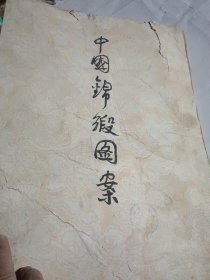 中國錦緞图案